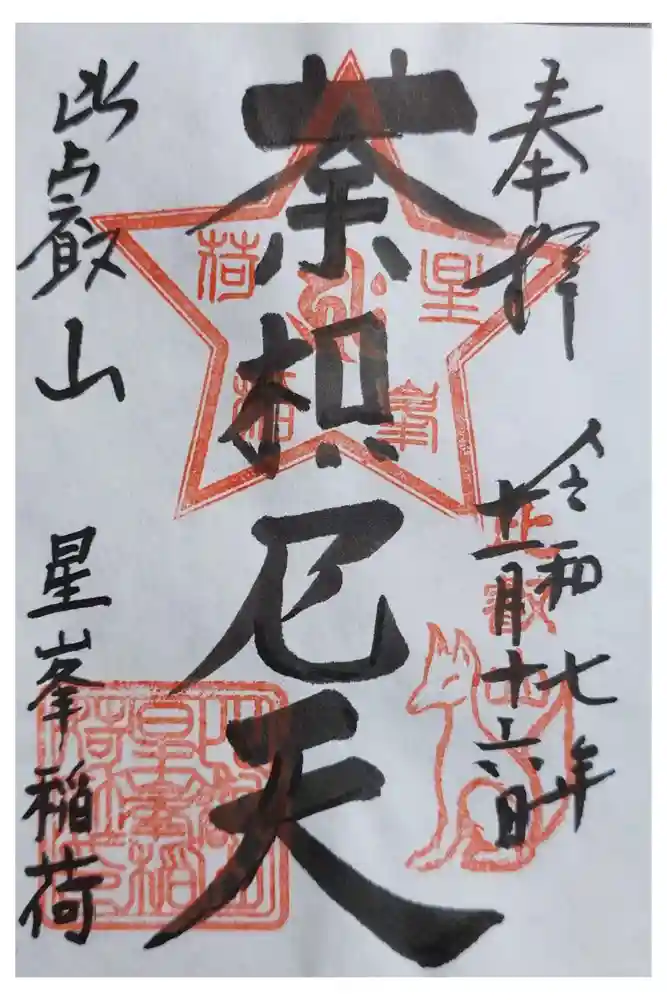 奉拝
令和七年
十一月十六日
荼枳尼天
比叡山
星峯稲荷
星峯稲荷
比叡山